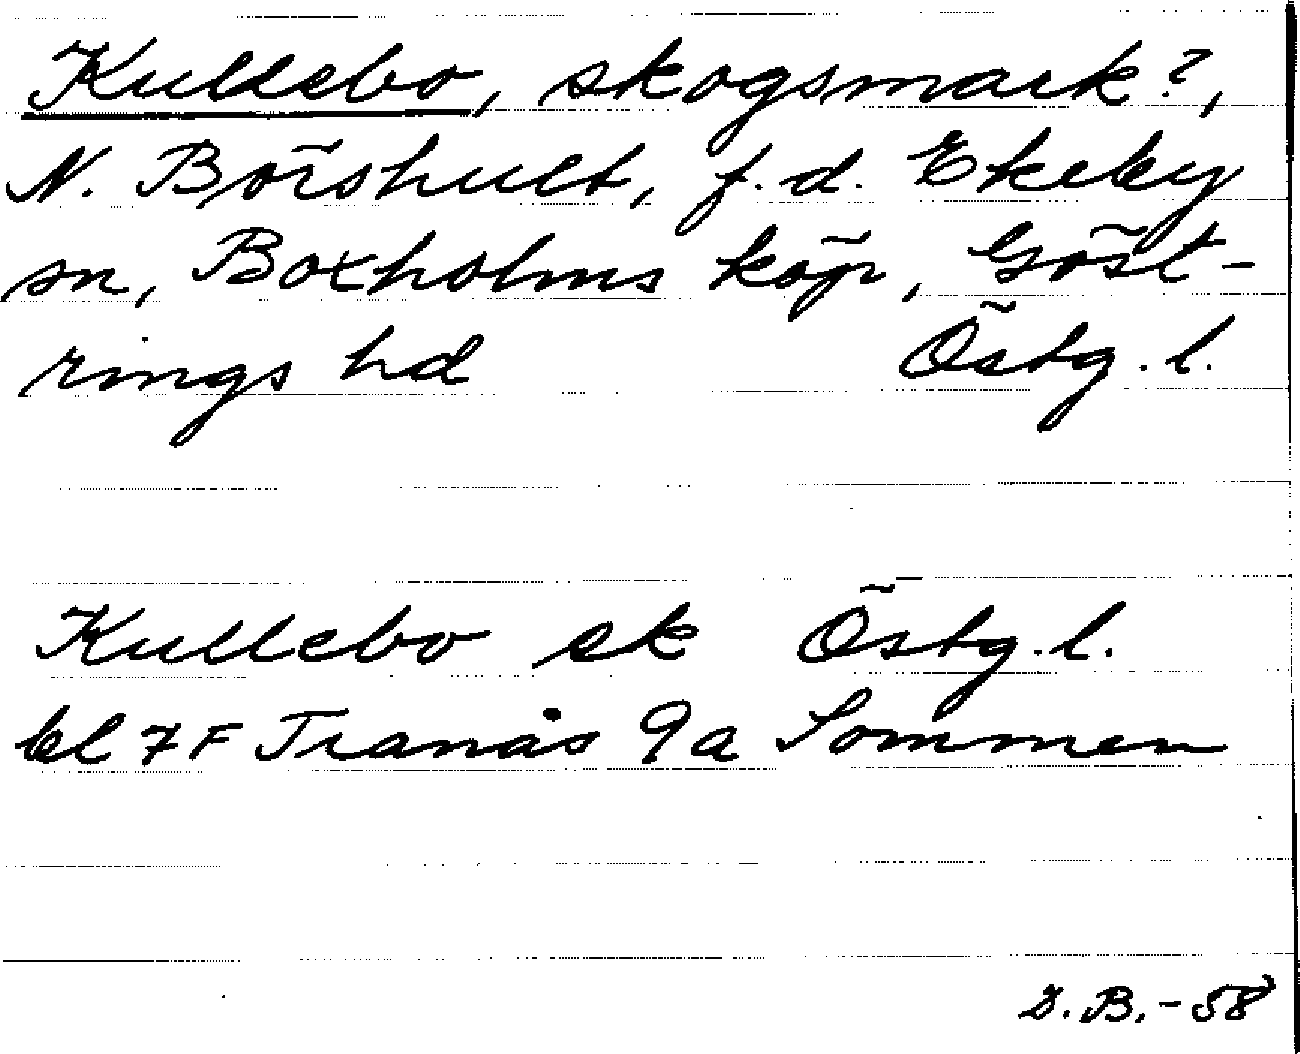 Kullebo, skogsmark?,
N. Börshult, f.d. Ekeby
sn, Boxholms köp, Göst-
rings hd Östg.l.
Kullebo sk Östg.l.
bl 7 F Tranås 9a Sommen
B.-58